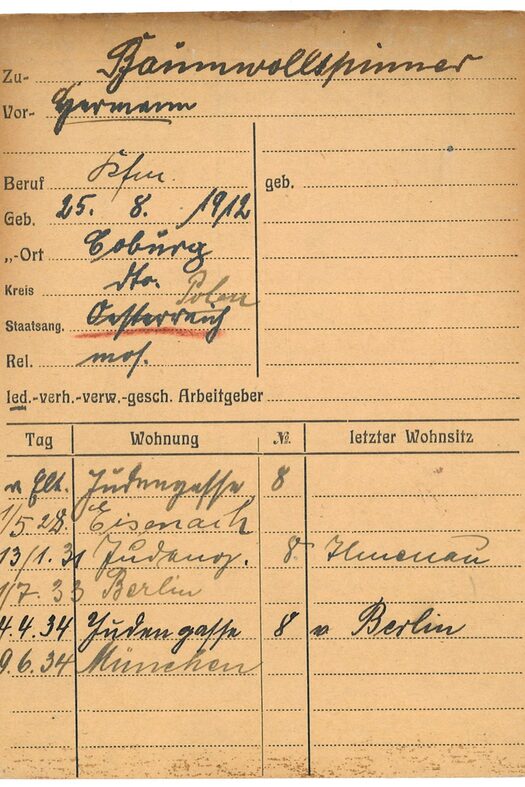 Zu- Baumwollspinner
Vor- Hermann
Beruf Kfm. geb.
Geb. 25. 8. 1912
„-Ort Coburg
Kreis dto. Polen
Staatsang. Oesterreich
Rel. mos.
led.-verh.-verw.-gesch. Arbeitgeber
Tag Wohnung № letzter Wohnsitz
v Elt. Judengasse 8
1/5 28. Eisenach
13/1. 31 Judeng. 8. Ilmenau
1/7. 33 Berlin
4.4.34 Judengasse 8 v Berlin
9.6.34 München